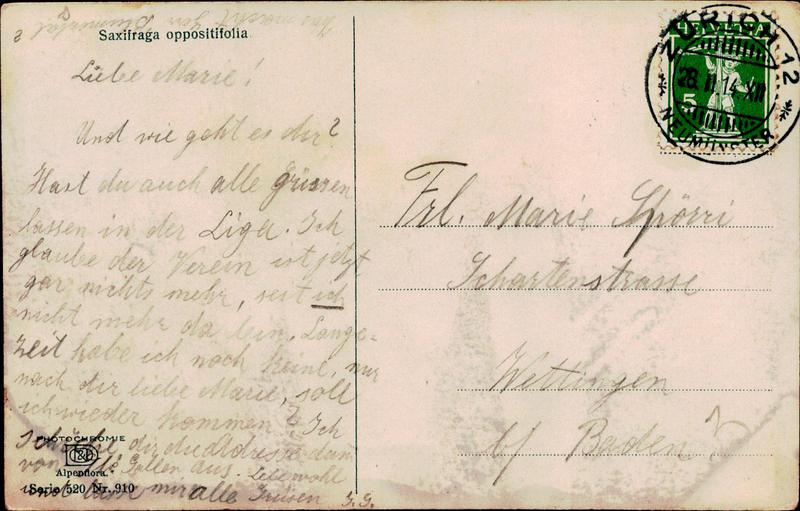 Saxifraga oppositifolia
Liebe Marie!
Und wie geht es dir?
Hast du auch alle grüssen
lassen in der Liga. Ich
glaube der Verein ist jetzt
gar nichts mehr, seit ich
nicht mehr da bin. Lange-
zeit habe ich noch keine, nur
nach dir liebe Marie, soll
ich wieder kommen? Ich
dir die Adresse dann
von St. Gallen aus. Lebe wohl
mir alle Grüssen
PHOTOCHROMIE
Alpenflora.
Serie 520 Nr. 910
HELVETIA
5
ZÜRICH 12
28.II.14.XII
NEUMÜNSTER
Frl. Marie Spörri
Schartenstrasse
Wettingen
b/ Baden